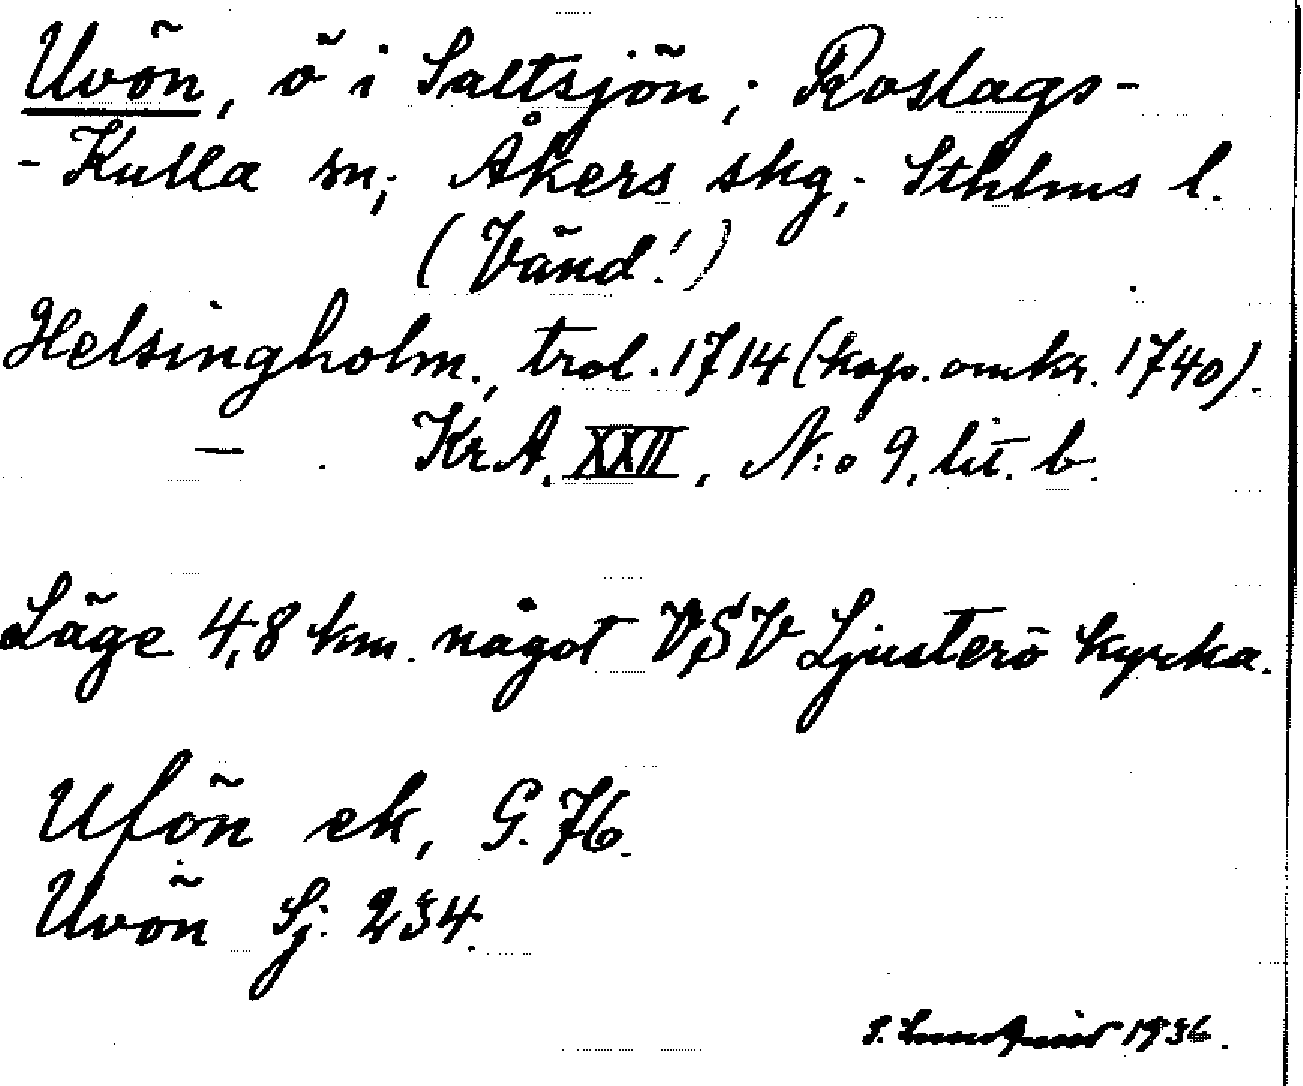 Uvön, ö i Saltsjön; Roslags-
-Kulla sn; Åkers skg; Sthlms l.
(Vänd!)
Helsingholm, trol. 1714 (kop. omkr. 1740).
— Kr.A. XXII, N:o 9, lit. b.
Läge 4,8 km. något VSV Ljusterö kyrka.
Ufön ek, G. 76.
Uvön Sj: 234.
S. Lundqvist 1936.